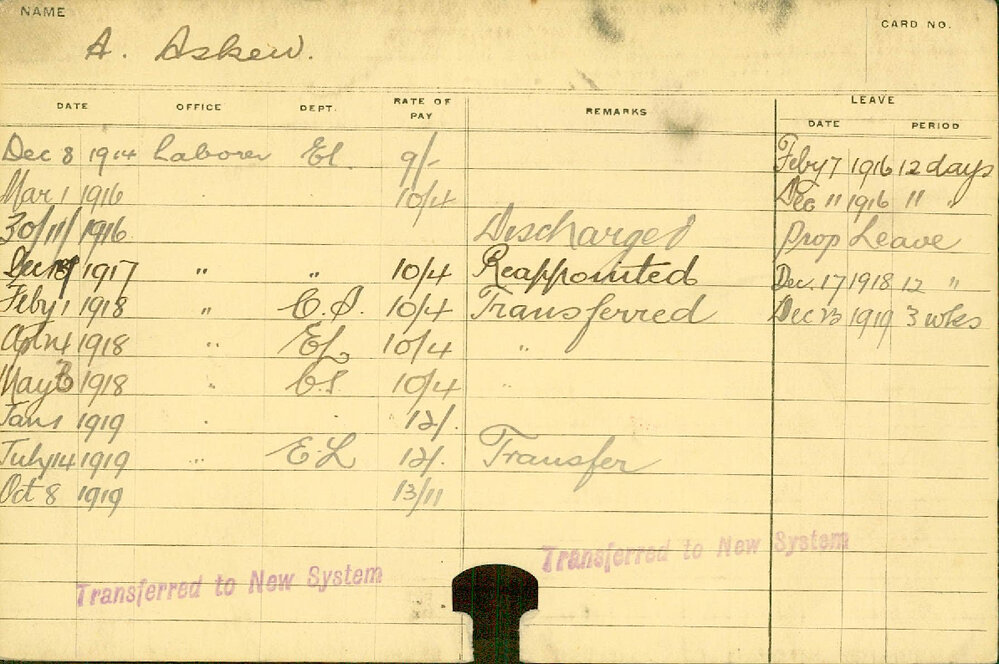 NAME
CARD NO.
A. Askew.
DATE OFFICE DEPT. RATE OF PAY REMARKS LEAVE
DATE PERIOD
Dec 8 1914 Laborer EL 9/- Feby 7 1916 12 days
Mar 1 1916 10/4 Dec 11 1916 11 "
30/11/1916 Discharged Prop Leave
Dec 1917 " " 10/4 Reappointed Dec. 17 1918 12 "
Feby 1 1918 " 10/4 Transferred Dec 23 1919 3 wks
1918 " EL 10/4 "
May 1918 " 10/4 "
Jan 1 1919 " " 12/.
July 14 1919 " E.L 12/. Transfer
Oct 8 1919 13/11
Transferred to New System
Transferred to New System